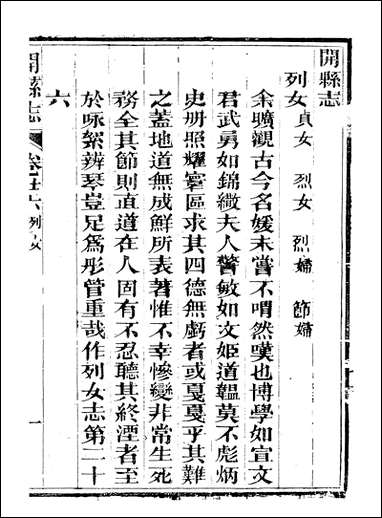 開縣志
列女 貞女 烈女 烈婦 節婦
余曠觀古今名媛未嘗不喟然嘆也博學如宣文
君武勇如錦繖夫人警敏如文姬道韞莫不彪炳
史册照耀寰區求其四德無虧者或戛戛乎其難
之蓋地道無成鮮所表著惟不幸慘變非常生死
務全其節則直道在人固有不忍聽其終湮者至
於咏絮辨琴豈足爲彤管重哉作列女志第二十
六
開縣志 卷廿六 列女 一